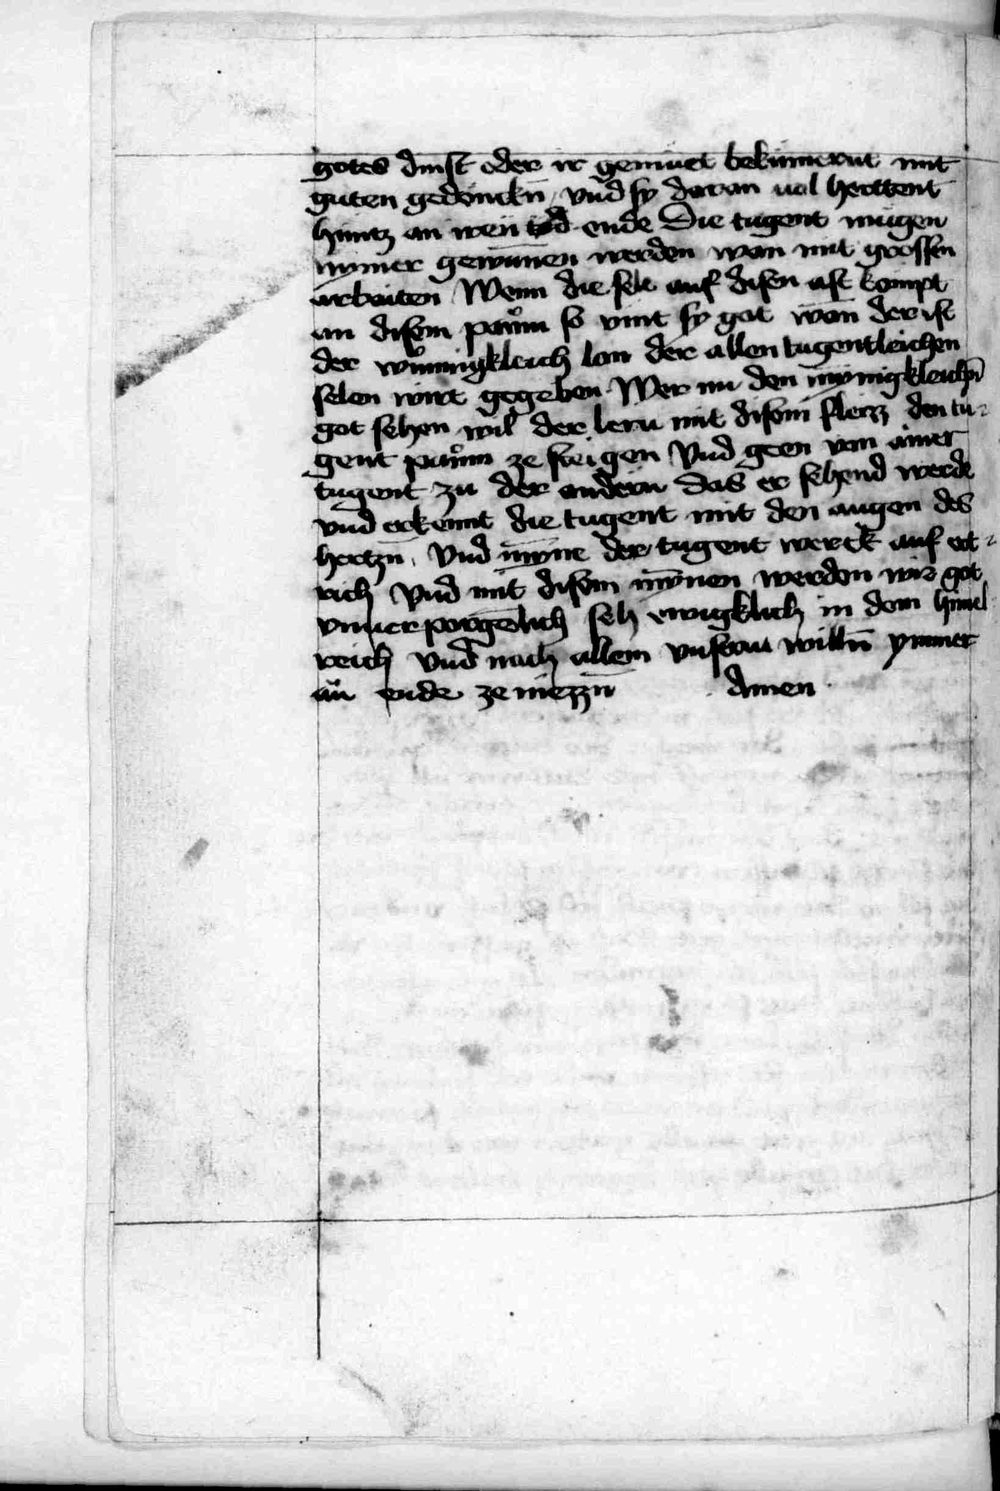 gotes dinst oder ir gemuet bekumernt mit
guten gedenckn̄ vnd sy daran vol herttent
huntz an iren tod ende Die tugent mugen
nymer gewun̄en werden wan mit grossen
arbaiten Wenn die sele auf disen ast kompt
an disem pawm so vint sy got wan der ist
der wunnigkleich lon der allen tugentleichen
selen wirt gegeben Wer nu den mynnigkleichn̄
got sehen wil der lern mit disem fleizz den tu-
gent pawm ze steigen Vnd geen von ainer
tugent zu der andern das er sehend werde
vnd erkennt die tugent mit den augen des
hertzn̄ Vnd myn̄e der tugent werck auf ert-
rich Vnd mit disem myn̄en werden wir got
vnuerporgenlich seh ewigklich in dem himel
reich Vnd nach allem vnserm willn̄ ymmer
an ende ze niezzn̄ Amen